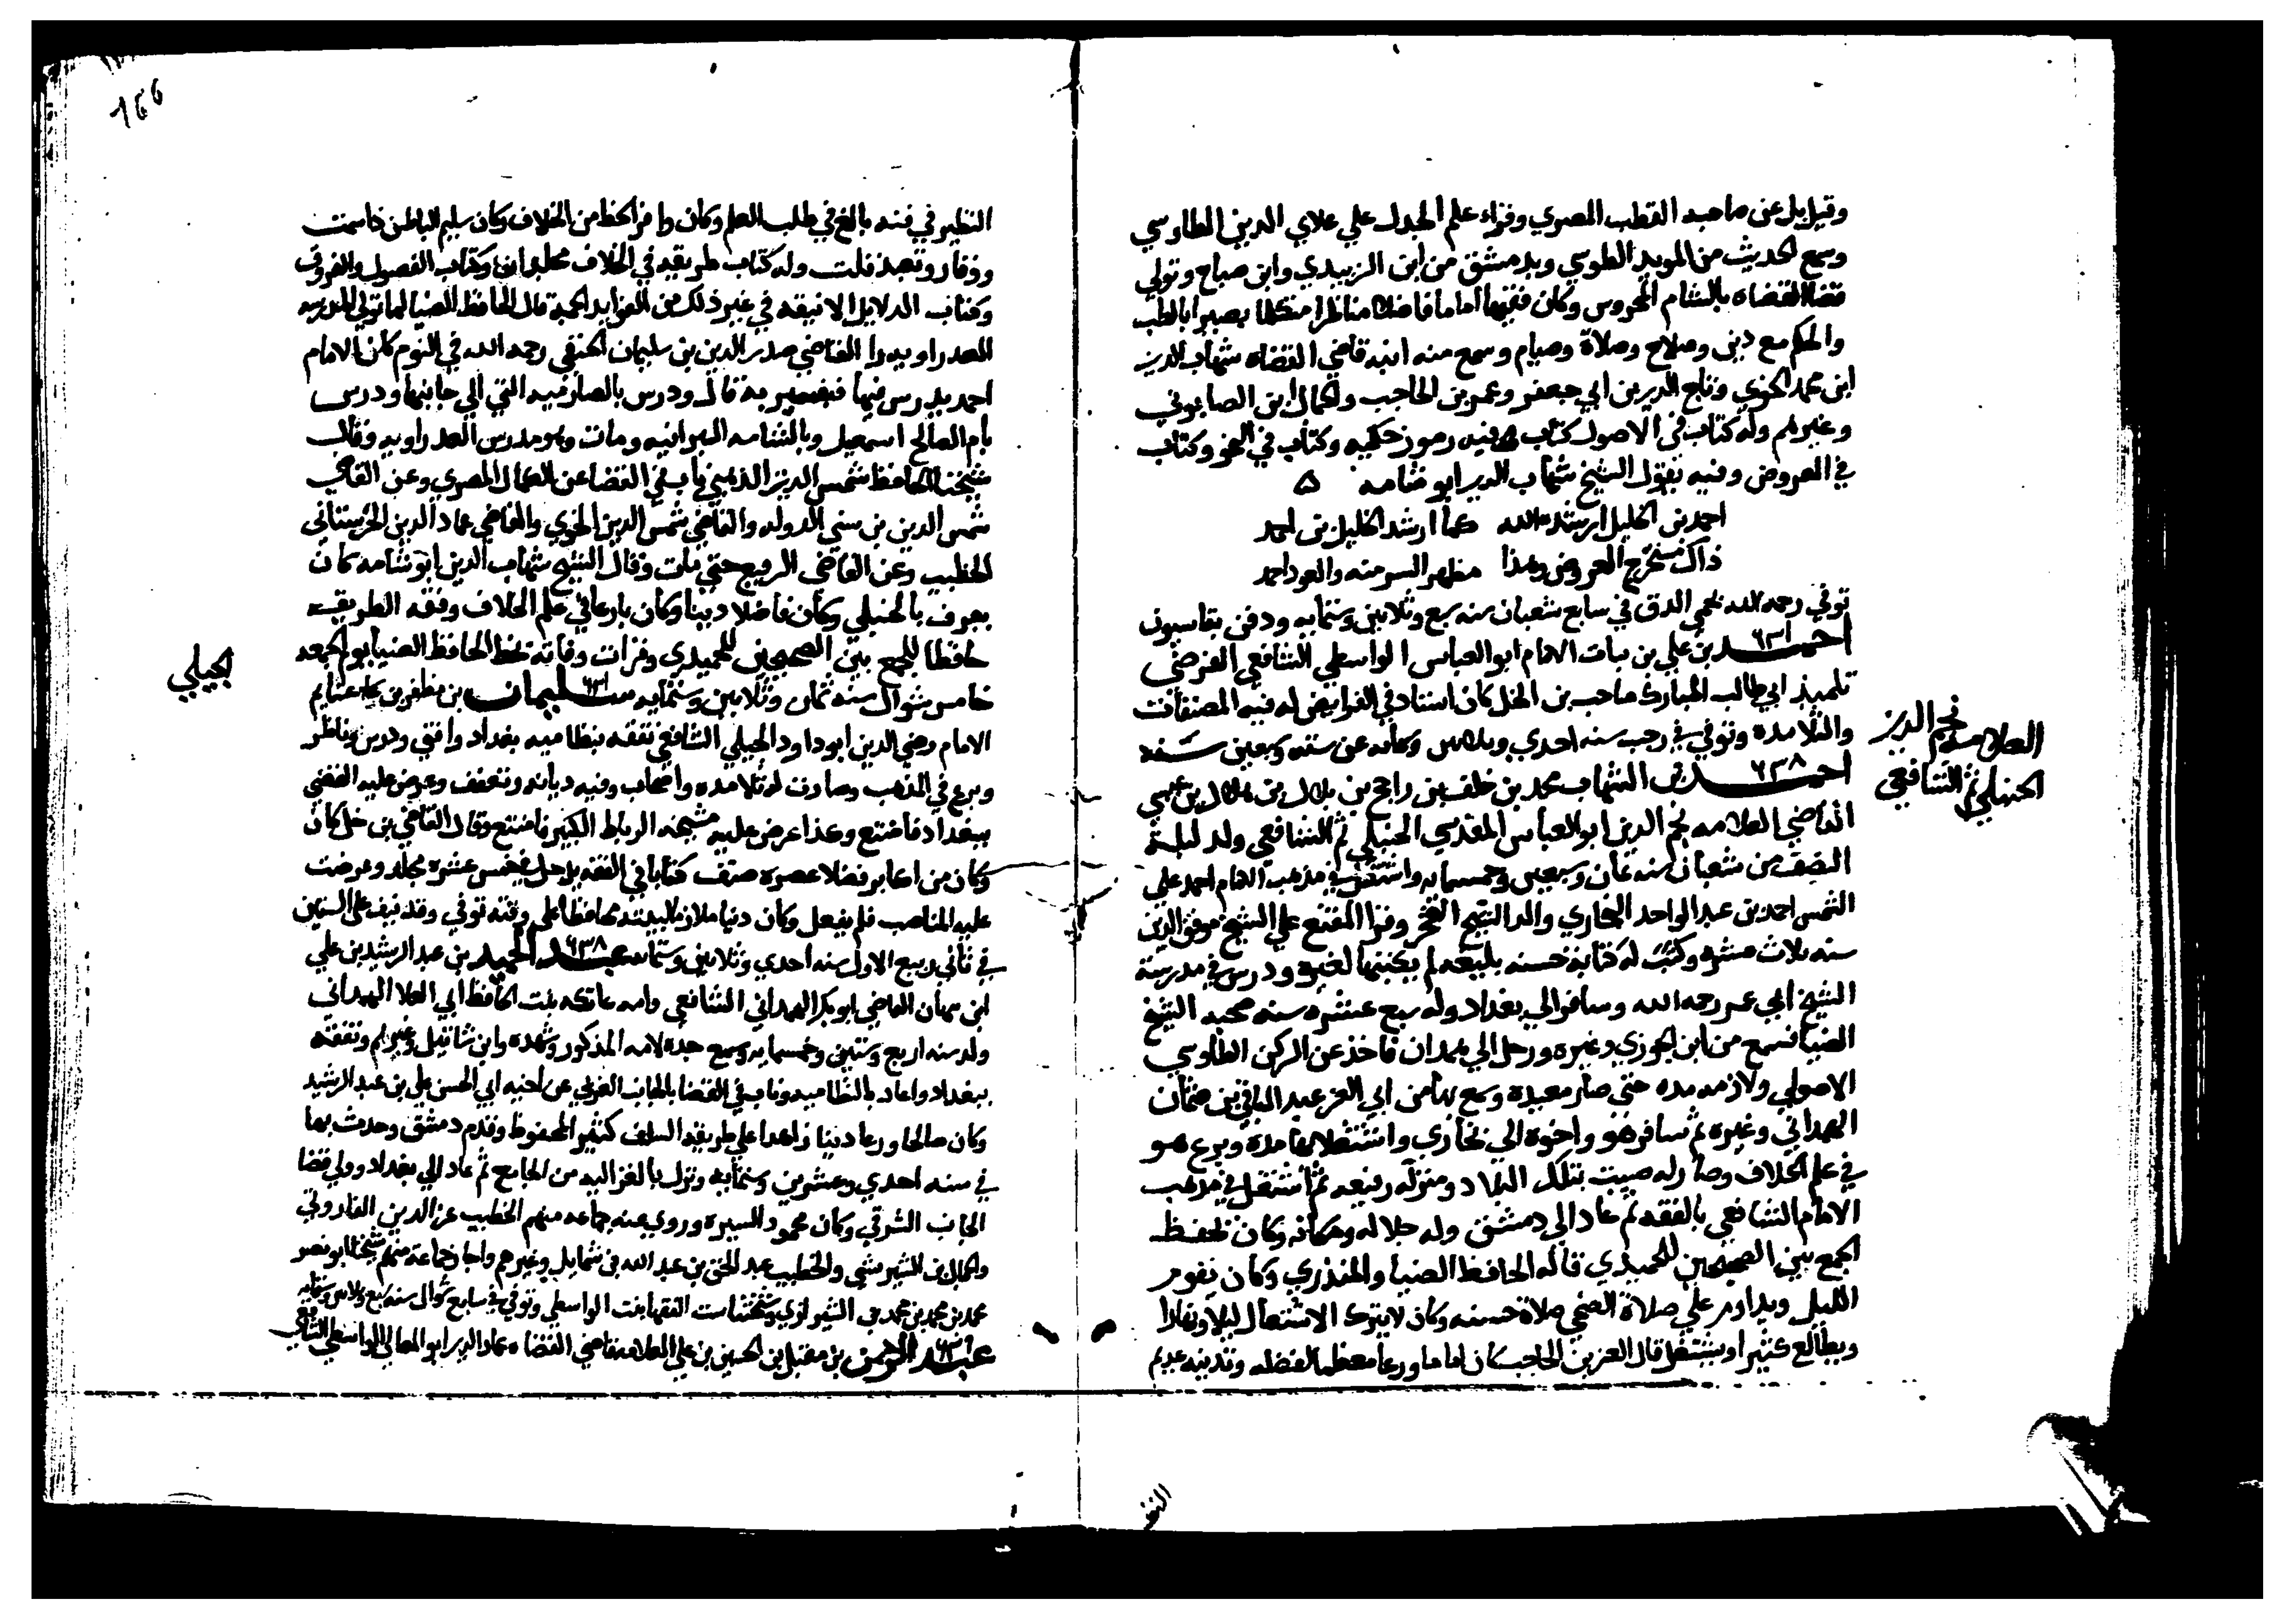 وقيل بل عن صاحبه القطب المصري وقراء علم الجدل علي علاي الدين الطاوسي
وسمع الحديث من المويد الطوسي وبدمشق من ابن الزبيدي وابن صباح وتولي
قضا القضاه بالشام المحروس وكان فقيها اماما فاضلا مناظرا متكلما بصيرا بالطب
والحكم مع دين وصلاح وصلاة وصيام وسمع منه ابنه قاضي القضاه شهاب الدين
ابن محمد الخوي وتاج الدين بن ابي جعفر وعمر بن الحاجب والكمال بن الصابوني
وغيرهم وله كتاب في الاصول كتاب فيه رموز حكميه وكتاب في النحو وكتاب
في العروض وفيه يقول الشيخ شهاب الدين ابو شامه ه
احمد بن الخليل ارشده الله كما ارشد الخليل بن احمد
ذاك مستخرج العروض وهذا مظهر السر منه والعود احمد
توفي رحمه الله بحمي الدق في سابع شعبان سنه سبع وثلاثين وستمايه ودفن بقاسيون
احمد ٦٣١ بن علي بن بات الامام ابو العباس الواسطي الشافعي الفرضي
تلميذ ابي طالب المبارك صاحب بن الخل كان استاد في الفرايض له فيه المصنفات
والتلامده وتوفي في رجب سنه احدي وثلاثين وستمايه عن سته وسبعين سنه
احمد ٦٣٨ بن الشهاب محمد بن خلف بن راجح بن بلال بن هلال بن عيسي
القاضي العلامه نجم الدين ابو العباس المقدسي الحنبلي ثم الشافعي ولد ليلة
النصف من شعبان سنه ثمان وسبعين وخمسمايه واشتغل في مذهب الامام احمد علي
الشمس احمد بن عبد الواحد البخاري والد الشيخ الفخر وقرا المقنع علي الشيخ موفق الدين
سنه ثلاث عشره وكتب له كتابة حسنه بليغه لم يكتبها لغيره ودرس في مدرسة
الشيخ ابي عمر رحمه الله وسافر الي بغداد وله سبع عشره سنه صحبه الشيخ
الضيا فسمع من ابن الجوزي وغيره ورحل الي همدان فاخذ عن الركن الطاوسي
الاصولي ولازمه مده حتي صار معيده وسمع بها من ابي العز عبد الباقي بن عثمان
الهمداني وغيره ثم سافر هو واخوه الي بخاري واشتغلا بها مدة وبرع هو
في علم الخلاف وصار له صيت بتلك البلاد ومنزله رفيعه ثم اشتغل في مذهب
الامام الشافعي بالفقه ثم عاد الي دمشق وله جلاله ومكانه وكان يحفظ
الجمع بين الصحيحين للحميدي قاله الحافظ الضيا والمنذري وكان يقوم
الليل ويداوم علي صلاة الضحي صلاة حسنه وكان لا يترك الاشتغال ليلا ونهارا
ويطالع كثيرا ويشتغل قال العز بن الحاجب كان اماما ورعا معظما لفضله وتدينه عديم
العلامه نجم الدين
الحنبلي ثم الشافعي
النظير في فنه بالغ في طلب العلم وكان وافر الحظ من الخلاف وكان سليم الباطن ذا سمت
ووقار وتعبد قلت وله كتاب طريقه في الخلاف مجلدان وكتاب الفصول والفروق
وكتاب الدلايل الانيقه في غير ذلك من الفوايد الجمة قال الحافظ الضيا لما تولي المدرسه
العدراويه را القاضي صدر الدين بن سليمان الحنفي رحمه الله في النوم كان الامام
احمد يدرس فيها فتفسر به قال ودرس بالصارميه التي الي جانبها ودرس
بام الصالح اسمعيل وبالشامه البرانيه ومات وهو مدرس العدراويه وقال
شيخنا الحافظ شمس الدين الذهبي ناب في القضا عن الجمال المصري وعن القاضي
شمس الدين بن سني الدوله والقاضي شمس الدين الخوي والقاضي عماد الدين الحرستاني
الخطيب وعن القاضي الرفيع حتي مات وقال الشيخ شهاب الدين ابو شامه كان
يعرف بالحنبلي وكان فاضلا دينا وكان بارعا في علم الخلاف وفقه الطريقه
حافظا للجمع بين الصحيحين للحميدي وقرات وفاته بخط الحافظ الضيا يوم الجمعه
خامس شوال سنه ثمان وثلاثين وستمايه سليمان ٦٣١ بن مظفر بن غنايم
الامام رضي الدين ابو داود الجيلي الشافعي تفقه بنظاميه بغداد وافتي ودرس وناظر
وبرع في المذهب وصارت له تلامده واصحاب وفيه ديانه وتعفف وعرض عليه القضي
ببغداد فامتنع وعذا عرض عليه مشيخه الرباط الكبير فامتنع وقال القاضي بن خلكان
وكان من اكابر فضلا عصره صنف كتابا في الفقه يدخل في خمس عشره مجلد وعرضت
عليه المناصب فلم يفعل وكان دينا ملازما لبيته محافظا علي وقته توفي وقد نيف علي الستين
في ثاني ربيع الاول سنه احدي وثلاثين وستمايه عبد الحميد ٦٣٨ بن عبد الرشيد بن علي
ابن بنيمان القاضي ابو بكر الهمداني الشافعي وامه عاتكه بنت الحافظ ابي العلا الهمداني
ولد سنه اربع وستين وخمسمايه وسمع جده لامه المذكور وشهده وابن شاتيل وغيرهم وتفقه
ببغداد واعاد بالنظاميه وناب في القضا بالجانب الغربي عن اخيه ابي الحسن علي بن عبد الرشيد
وكان صالحا ورعا دينا زاهدا علي طريقه السلف كثير المحفوظ وقدم دمشق وحدث بها
في سنه احدي وعشرين وستمايه ونزل بالغزاليه من الجامع ثم عاد الي بغداد وولي قضا
الجانب الشرقي وكان محمود السيره وروي عنه جماعه منهم الخطيب عز الدين الفاروثي
والكمال بن الشريشي والخطيب عبد الحق بن عبد الله بن شمايل وغيرهم واجاز جماعة منهم شيخنا ابو نصر
محمد بن محمد بن محمد بن الشيرازي وشيختنا ست الفقها بنت الواسطي وتوفي في سابع شوال سنه سبع وثلاثين وستمايه
عبد الرحمن بن مقبل بن الحسين بن علي العلامه قاضي القضاه عماد الدين ابو المعالي الواسطي الشافعي
الجيلي